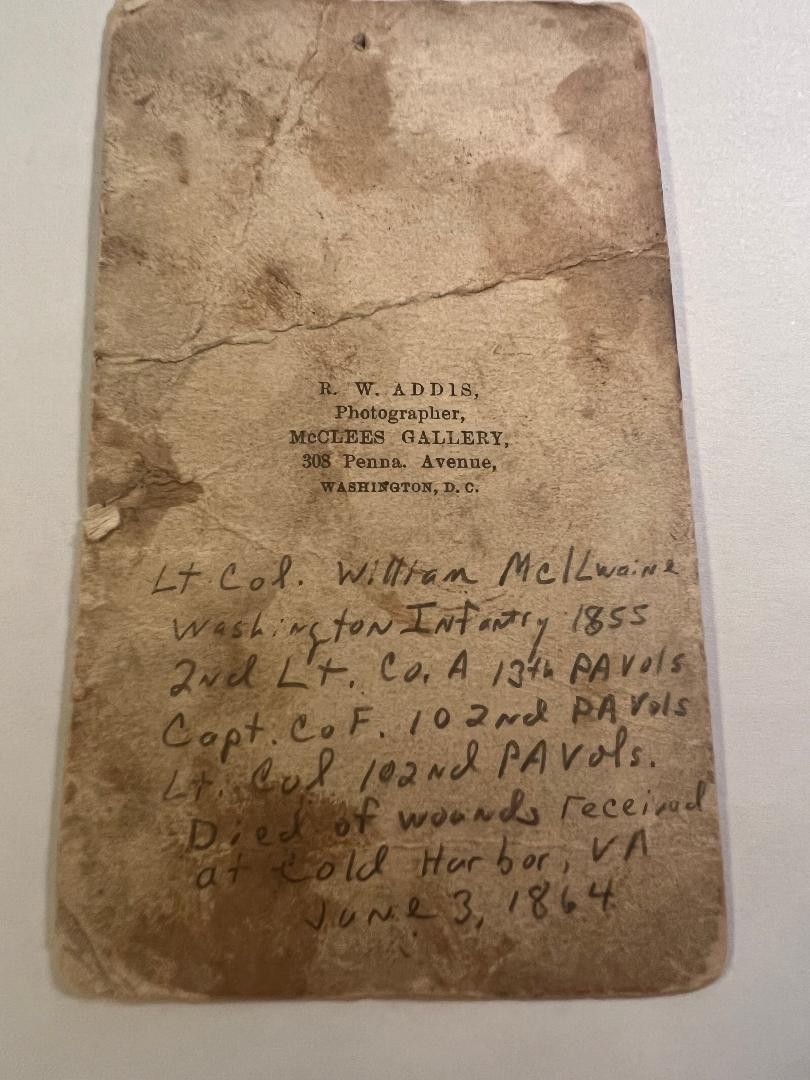 R. W. ADDIS,
Photographer,
McCLEES GALLERY,
308 Penna. Avenue,
WASHINGTON, D. C.
Lt. Col. William McIlwaine
Washington Infantry 1855
2nd Lt. Co. A 13th PA Vols
Capt. Co F. 102nd PA Vols
Lt. Col 102nd PA Vols.
Died of wounds received
at Cold Harbor, VA
June 3, 1864